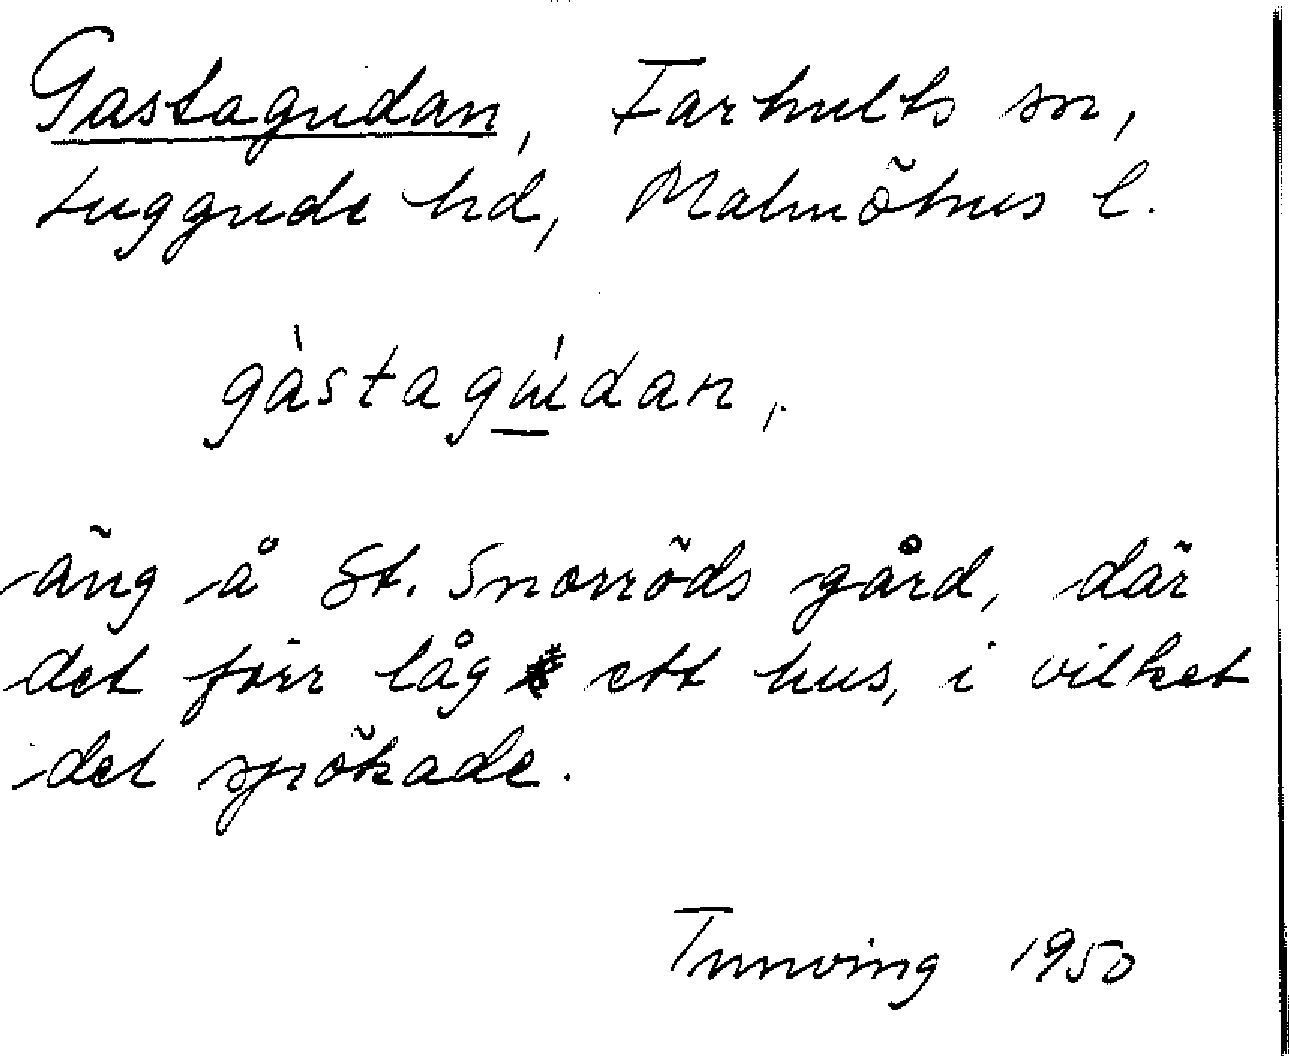 Gastagudan, Farhults sn,
Luggude hd, Malmöhus l.
gàstagú̲dan,
äng å St. Snorröds gård, där
det förr låg ett hus, i vilket
det spökade.
Tunving 1950